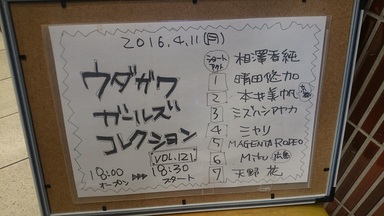 2016.4.11(月)
ウダガワ
ガールズ
コレクション
VOL.121
18:00 18:30
オープン スタート
相澤香純
1 晴田悠加
2 本井美帆
3 ミズハシアヤカ
4 ミャリ
5 MAGENTA RODEO
6
7 天野花